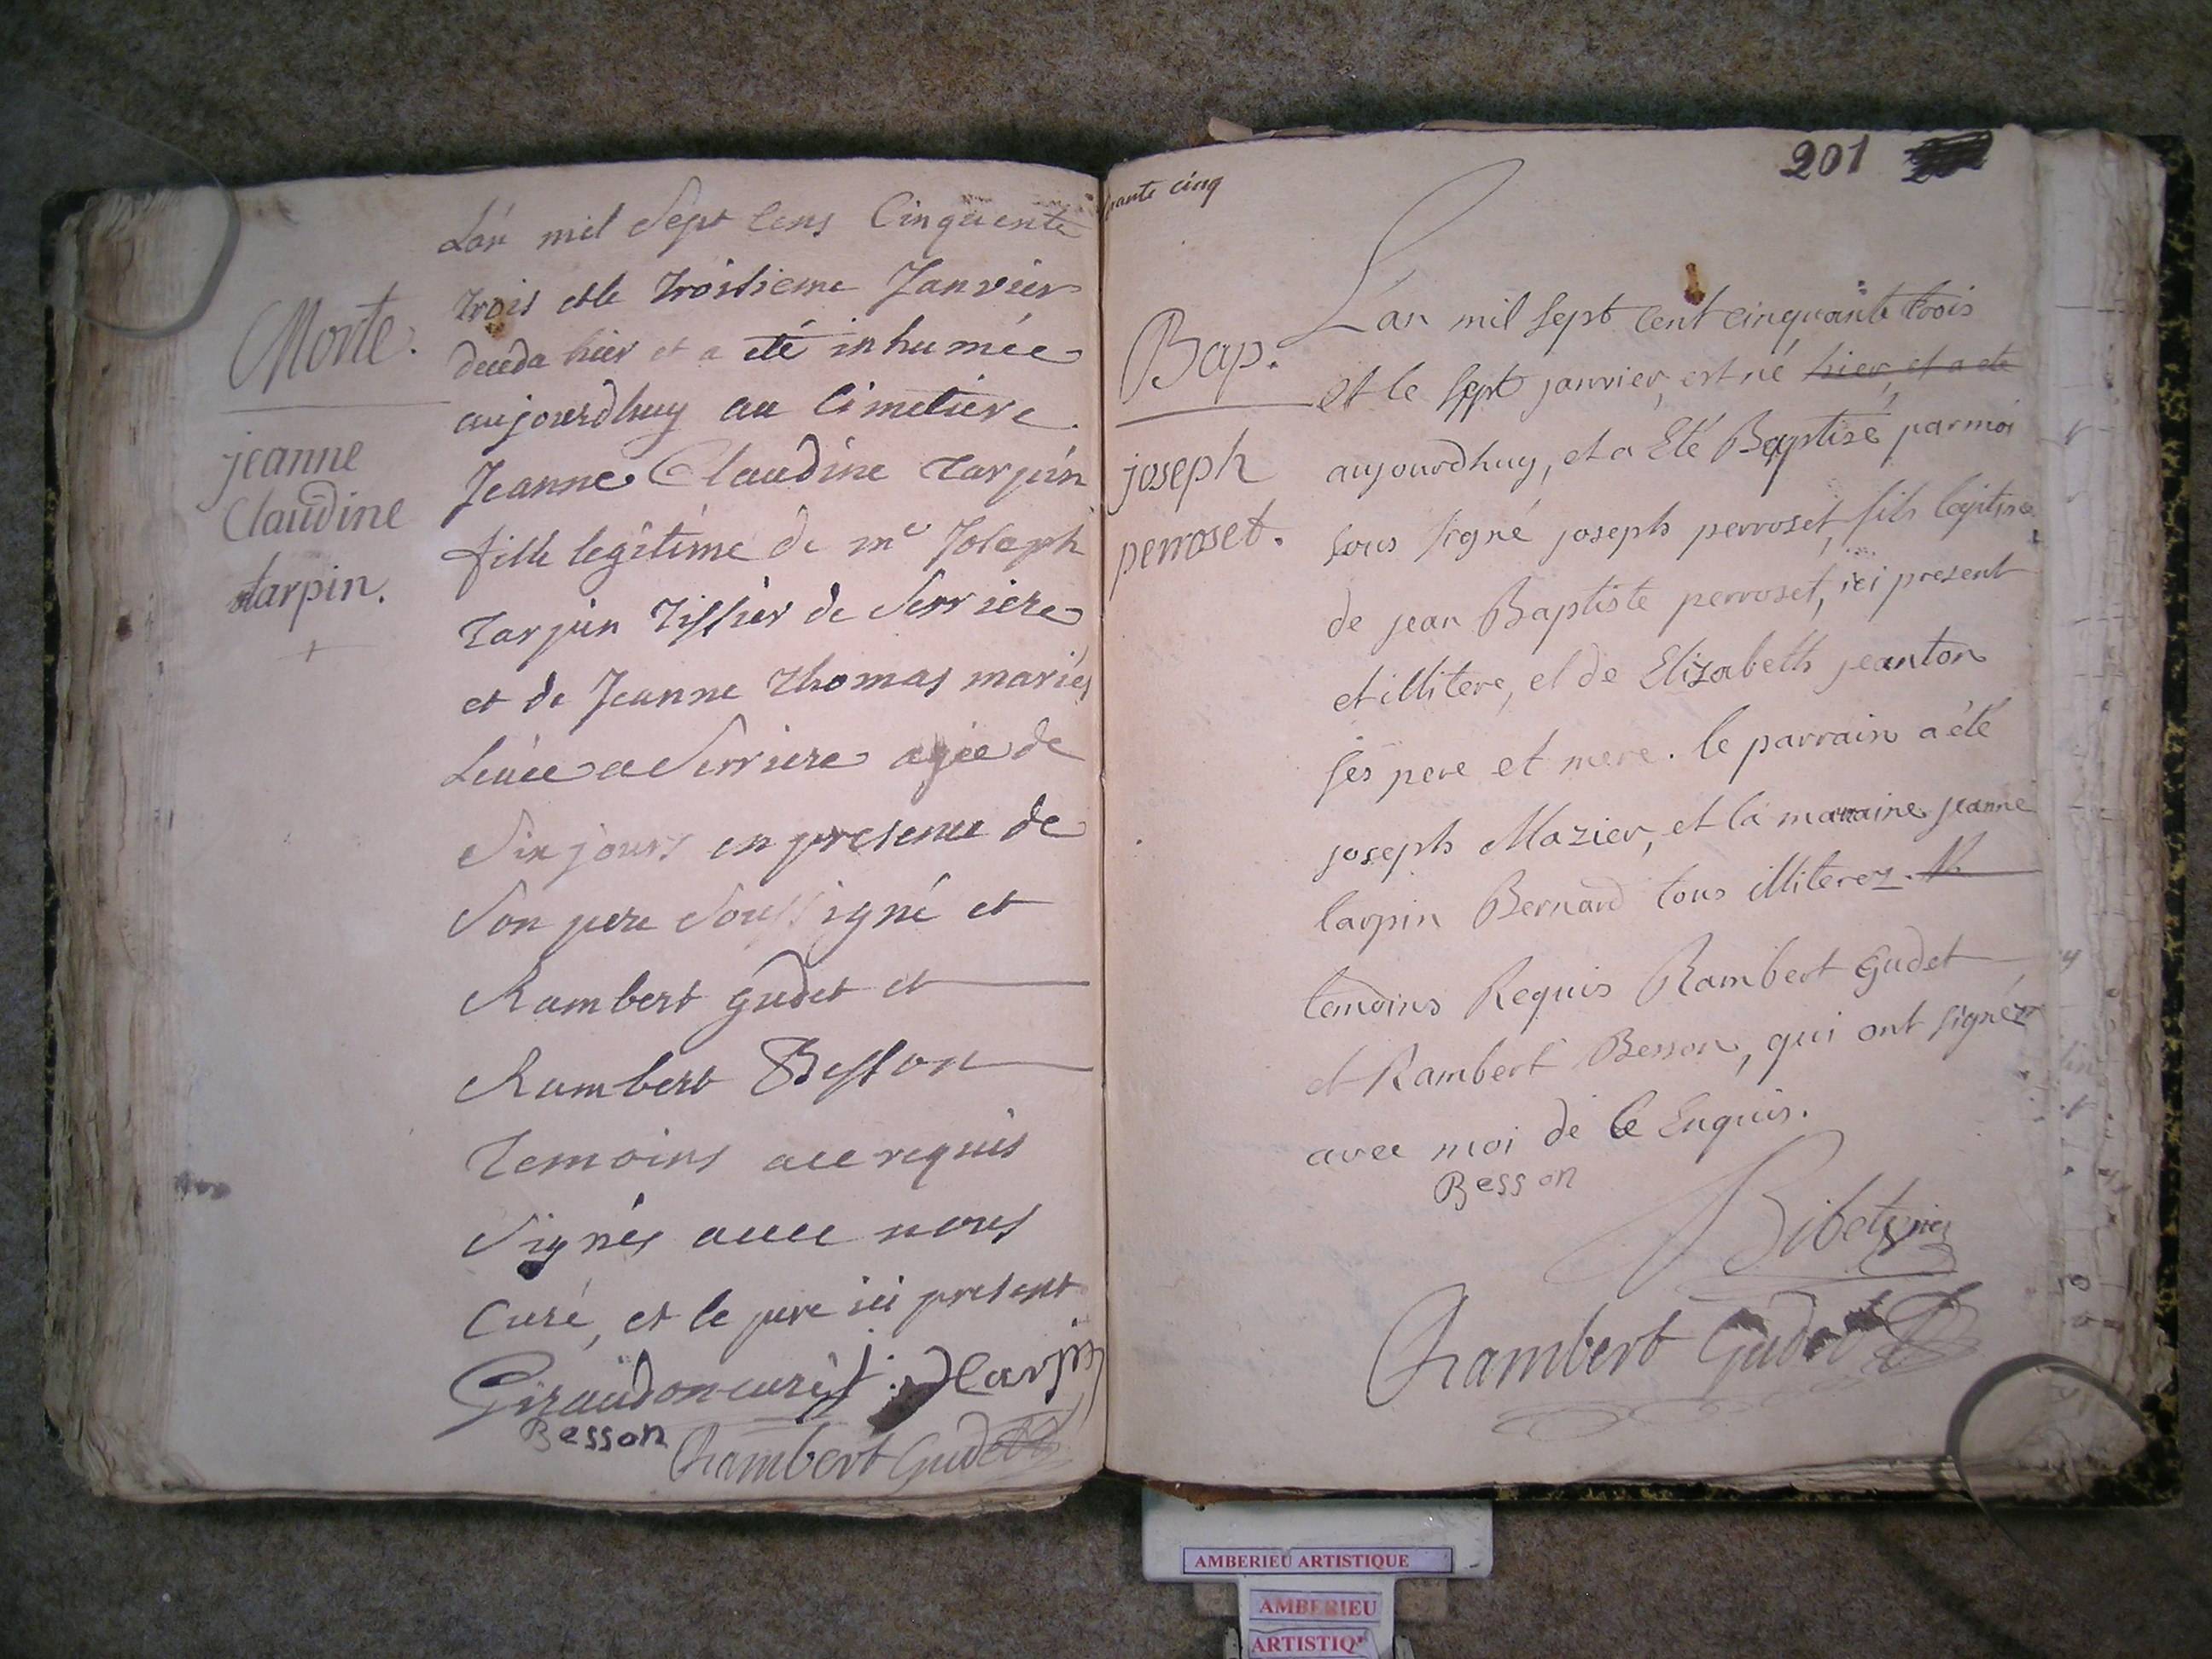 Morte.
jeanne
Claudine
tarpin.
L'an mil Sept Cens Cinquente
trois et le troisieme Janvier
deceda hier et a eté inhumée
aujourdhuy au Cimetiere
Jeanne Claudine tarpin
fille legitime de me Joseph
Tarpin Tissier de Serriere
et de Jeanne thomas mariés
Serriere agée de
Six jours en presence de
Son pere Soussigné et
Rambert gudet et
Rambert Besson
Temoins a ce requis
Signés avec nous
Curé, et le pere ici present
Giraudon curé J. Tarpin
Besson Chambert Gudet
pante cinq
201
Bap.
joseph
perroset.
L'an mil sept cent cinquante trois
et le sept janvier, est né hier, et a ete
aujourdhuy, et a Eté Baptisé par moi
sous signé joseph perroset, fils legitime
de jean Baptiste perroset, ici present
et illitere, et de Elizabeth jeanton
ses pere et mere. le parrain a été
joseph Mazier, et la maraine jeanne
tarpin Bernard tous illiterez.
temoins Requis Rambert Gudet
et Rambert Besson, qui ont signéz
avec moi de ce Enquis.
Besson
Chambert Gudet
AMBERIEU ARTISTIQUE
AMBERIEU
ARTISTIQ